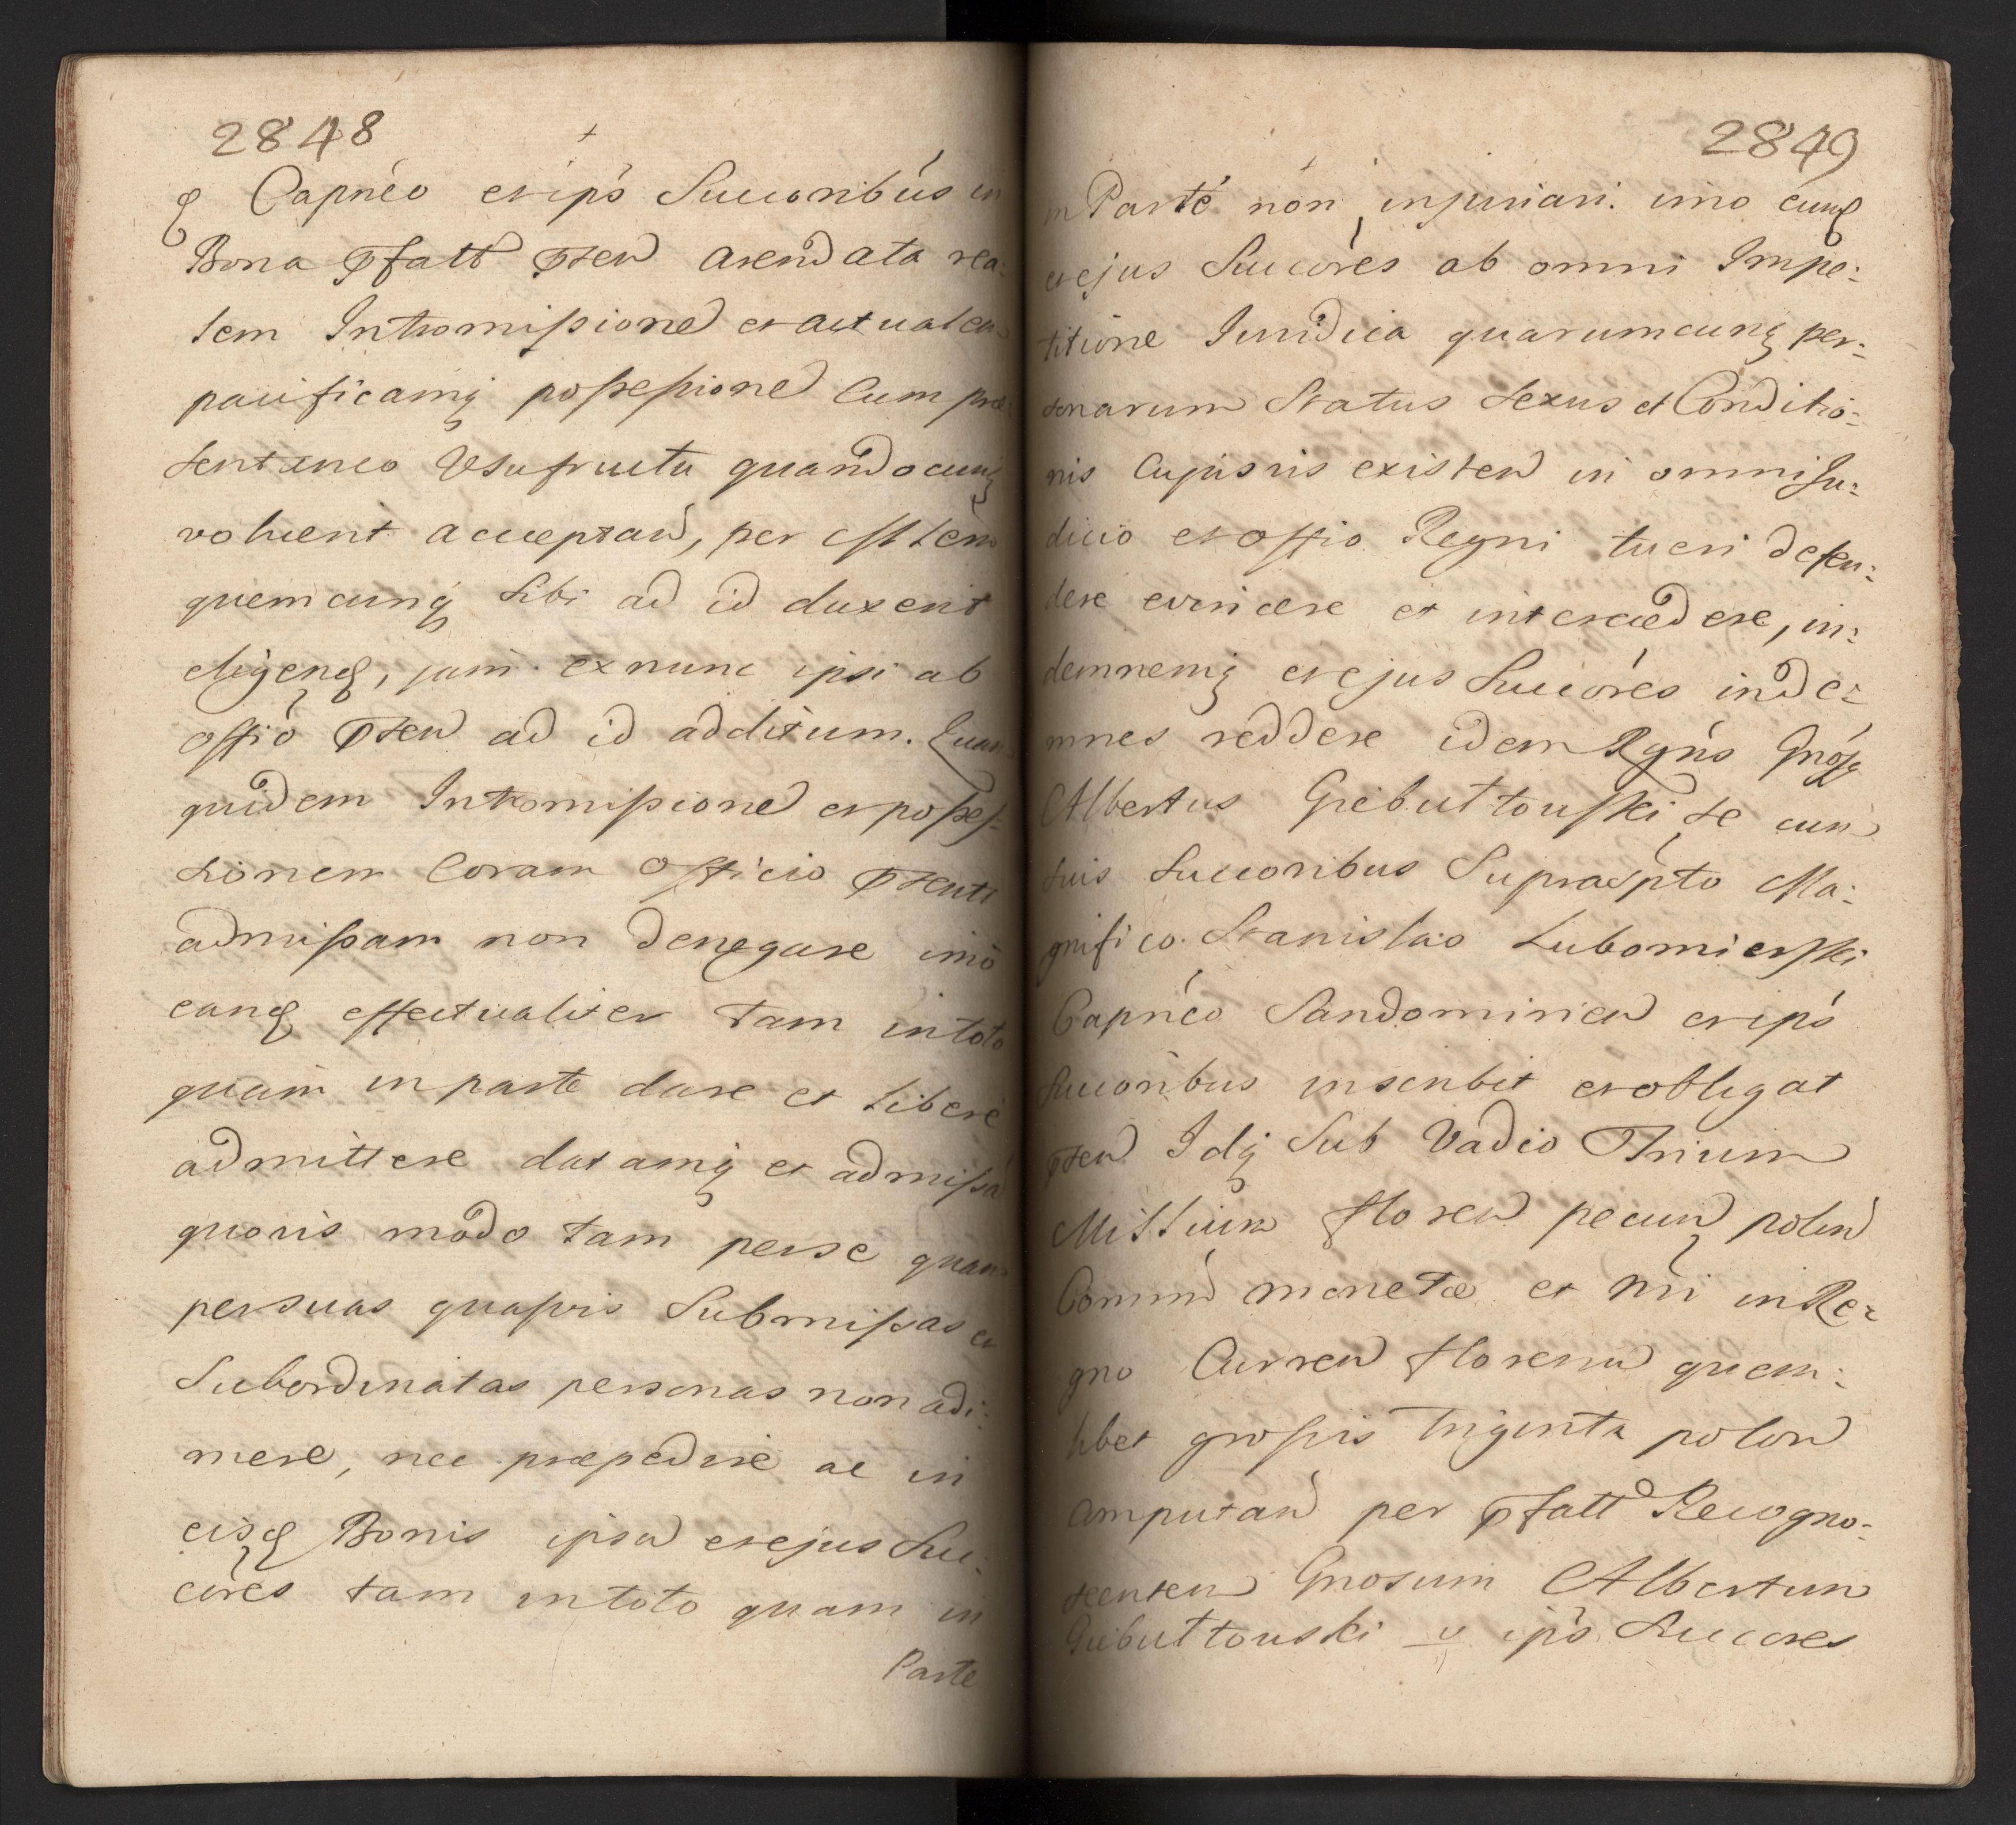 2848
Capnéo et ips Succoribus in
Bona pfatt pten arendata rea:
lem Intromissione et actualem
pacificamq possessione Cum præ
sentaneo Usufructu quandocunq
voluerit acceptand, per Mstem
quemcunq sibi ad id duxerit
eligend, jam ex nunc ipsi ab
offio pten ad id additum. Quam
quidem Intromissione et posses:
sionem Coram Officio ptenti
admissam non denegare imo
eand effectualiter tam in toto
quam in parte dare et libere
admittere datamq et admissa
quovis modo tam per se quam
per suas quasvis Submissas et
Subordinatas personas non adi:
mere, nec præpedire ac in
eisd Bonis ipsu et ejus Suc:
cores tam in toto quam in
Parte
2849
in Parte non injuriari. imo eund
et ejus Succores ab omni Impe:
titione Juridica quarumcunq per:
sonarum Status sexus et Conditio:
nis Cujusvis existen in omni Ju:
dicio et offio Regni tueri defen:
dere evincere et intercedere, in:
demnemq et ejus Succores inde:
mnes reddere idem Rgns Gnosq
Albertus Giebułtouski se cum
suis Succoribus Suprascpto Ma:
gnifico Stanislao Lubomierski
Capnéo Sandomirien et ips
Succoribus inscribit et obligat
pten Idq Sub Vadio Trium
Millium floren pecun polen
Commun monetæ et nri in Re:
gno Curren florenu quem:
libet grossis Triginta polon
amputan per pfatt Recogno:
scenten Gnosum Albertum
Giebułtouski v ips Succores